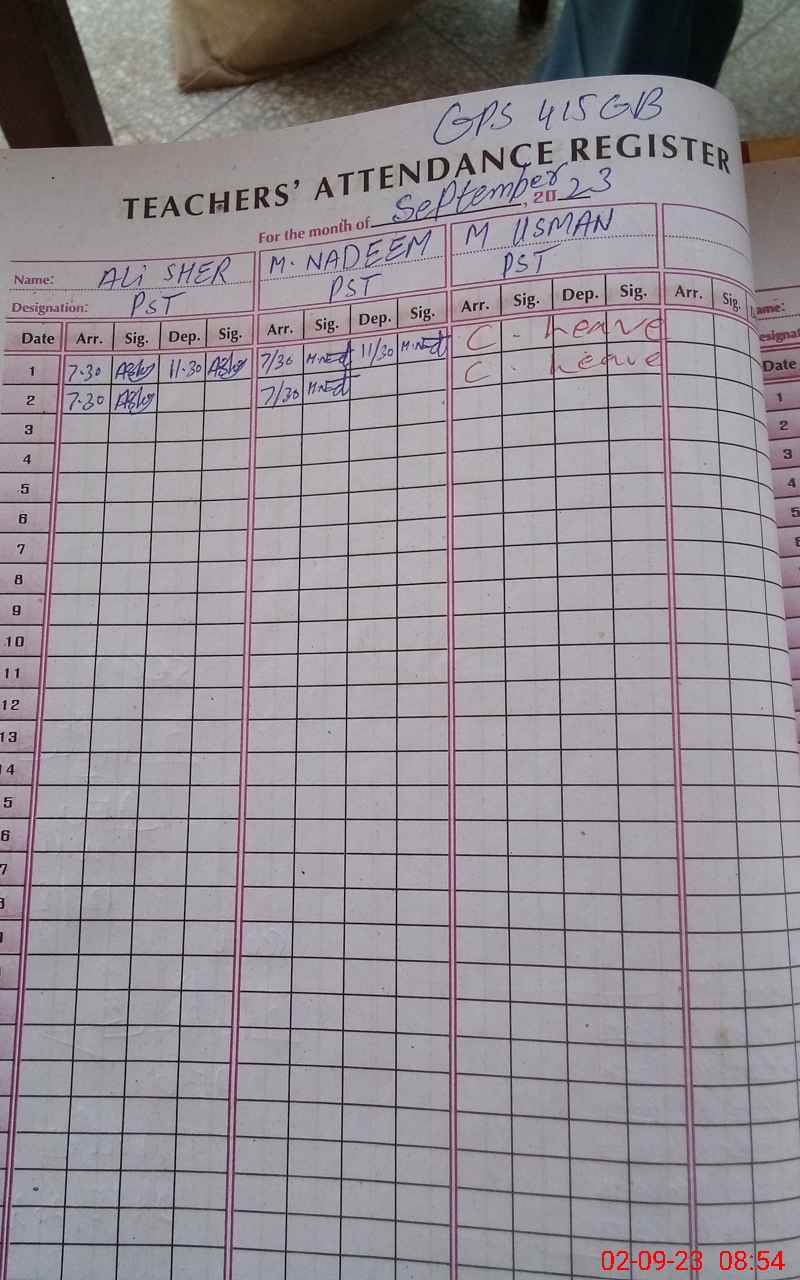 GPS 415GB
TEACHERS' ATTENDANCE REGISTER
For the month of September, 2023
Name: ALi SHER M. NADEEM M USMAN
Designation: PST PST PST
Date Arr. Sig. Dep. Sig. Arr. Sig. Dep. Sig. Arr. Sig. Dep. Sig. Arr. Sig.
1 7-30 11-30 7/30 11/30 C - Leave
2 7-30 7/30 C - Leave
3
4
5
6
7
8
9
10
11
12
13
14
5
6
7
ame:
esignat
Date
1
2
3
4
5
6
02-09-23 08:54